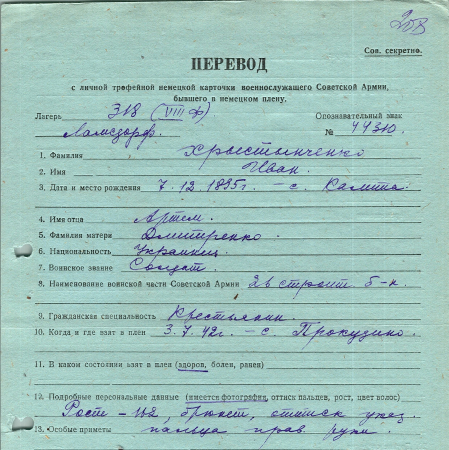 Сов. секретно.
ПЕРЕВОД
с личной трофейной немецкой карточки военнослужащего Советской Армии,
бывшего в немецком плену.
Лагерь 318 (VIII ф) Опознавательный знак
Ламсдорф. № 44310.
1. Фамилия Хрыстыченко
2. Имя Иван.
3. Дата и место рождения 7.12.1895г. - с. Калита.
4. Имя отца Артем.
5. Фамилия матери Дмитренко
6. Национальность Украинец
7. Воинское звание Солдат
8. Наименование воинской части Советской Армии строит. б-н.
9. Гражданская специальность Крестьянин
10. Когда и где взят в плен 3.7.42г. - с. Прокудино.
11. В каком состоянии взят в плен (здоров, болен, ранен)
12. Подробные персональные данные (имеется фотография, оттиск пальцев, рост, цвет волос)
Рост - 162, брюнет, оттиск указ.
13. Особые приметы пальца прав. руки.